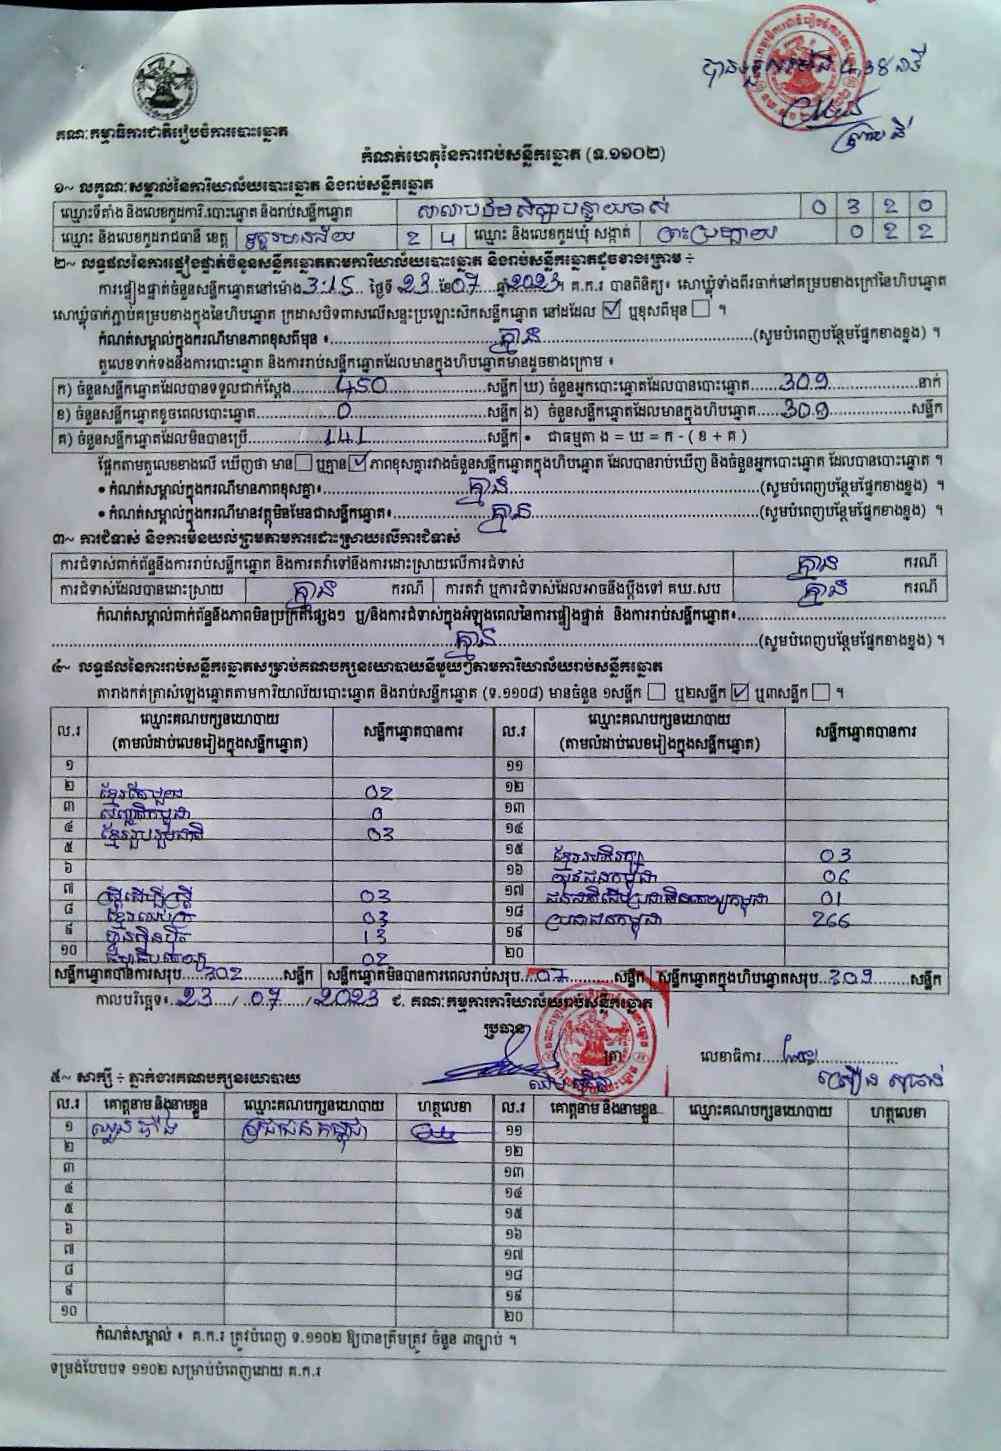 គណៈកម្មាធិការជាតិរៀបចំការបោះឆ្នោត
កំណត់ហេតុនៃការរាប់សន្លឹកឆ្នោត (ទ.១១០២)
១~ លក្ខណៈសម្គាល់នៃការិយាល័យបោះឆ្នោត និងរាប់សន្លឹកឆ្នោត
ឈ្មោះទីតាំង និងលេខកូដការិ.បោះឆ្នោត និងរាប់សន្លឹកឆ្នោត 0 3 2 0
ឈ្មោះ និងលេខកូដរាជធានី ខេត្ត 2 4 ឈ្មោះ និងលេខកូដឃុំ សង្កាត់ 0 2 2
២~ លទ្ធផលនៃការផ្ទៀងផ្ទាត់ចំនួនសន្លឹកឆ្នោតតាមការិយាល័យបោះឆ្នោត និងរាប់សន្លឹកឆ្នោតដូចខាងក្រោម ÷
ការផ្ទៀងផ្ទាត់ចំនួនសន្លឹកឆ្នោតនៅម៉ោង 3:15 ថ្ងៃទី 23 ខែ 07 ឆ្នាំ 2023 ។ គ.ក.រ បានពិនិត្យ៖ សោឃ្លុំទាំងពីរចាក់នៅគម្របខាងក្រៅនៃហិបឆ្នោត
សោឃ្លុំចាក់ភ្ជាប់គម្របខាងក្នុងនៃហិបឆ្នោត ក្រដាសបិទពាសលើសន្ទះប្រឡោះសឹកសន្លឹកឆ្នោត នៅដដែល ☑ ឬខុសពីមុន ☐ ។
កំណត់សម្គាល់ក្នុងករណីមានភាពខុសពីមុន ៖ គ្មាន (សូមបំពេញបន្ថែមផ្នែកខាងខ្នង) ។
តួលេខទាក់ទងនឹងការបោះឆ្នោត និងការរាប់សន្លឹកឆ្នោតដែលមានក្នុងហិបឆ្នោតមានដូចខាងក្រោម ៖
ក) ចំនួនសន្លឹកឆ្នោតដែលបានទទួលជាក់ស្តែង 450 សន្លឹក ឃ) ចំនួនអ្នកបោះឆ្នោតដែលបានបោះឆ្នោត 309 នាក់
ខ) ចំនួនសន្លឹកឆ្នោតខូចពេលបោះឆ្នោត 0 សន្លឹក ង) ចំនួនសន្លឹកឆ្នោតដែលមានក្នុងហិបឆ្នោត 309 សន្លឹក
គ) ចំនួនសន្លឹកឆ្នោតដែលមិនបានប្រើ 141 សន្លឹក • ជាធម្មតា ង = ឃ = ក - ( ខ + គ )
ផ្អែកតាមតួលេខខាងលើ ឃើញថា មាន ☐ ឬគ្មាន ☑ ភាពខុសគ្នារវាងចំនួនសន្លឹកឆ្នោតក្នុងហិបឆ្នោត ដែលបានរាប់ឃើញ និងចំនួនអ្នកបោះឆ្នោត ដែលបានបោះឆ្នោត ។
• កំណត់សម្គាល់ក្នុងករណីមានភាពខុសគ្នា៖ គ្មាន (សូមបំពេញបន្ថែមផ្នែកខាងខ្នង) ។
• កំណត់សម្គាល់ក្នុងករណីមានវត្ថុមិនមែនជាសន្លឹកឆ្នោត៖ គ្មាន (សូមបំពេញបន្ថែមផ្នែកខាងខ្នង) ។
៣~ ការជំទាស់ និងការមិនយល់ព្រមតាមការដោះស្រាយលើការជំទាស់
ការជំទាស់ពាក់ព័ន្ធនឹងការរាប់សន្លឹកឆ្នោត និងការតវ៉ាទៅនឹងការដោះស្រាយលើការជំទាស់ គ្មាន ករណី
ការជំទាស់ដែលបានដោះស្រាយ គ្មាន ករណី ការតវ៉ា ឬការជំទាស់ដែលអាចនឹងប្តឹងទៅ គឃ.សប គ្មាន ករណី
កំណត់សម្គាល់ពាក់ព័ន្ធនឹងភាពមិនប្រក្រតីផ្សេងៗ ឬ/និងការជំទាស់ក្នុងអំឡុងពេលនៃការផ្ទៀងផ្ទាត់ និងការរាប់សន្លឹកឆ្នោត៖
គ្មាន (សូមបំពេញបន្ថែមផ្នែកខាងខ្នង) ។
៤~ លទ្ធផលនៃការរាប់សន្លឹកឆ្នោតសម្រាប់គណបក្សនយោបាយនីមួយៗតាមការិយាល័យរាប់សន្លឹកឆ្នោត
តារាងកត់ត្រាសំឡេងឆ្នោតតាមការិយាល័យបោះឆ្នោត និងរាប់សន្លឹកឆ្នោត (ទ.១១០៨) មានចំនួន ១សន្លឹក ☐ ឬ២សន្លឹក ☑ ឬ៣សន្លឹក ☐ ។
ល.រ ឈ្មោះគណបក្សនយោបាយ (តាមលំដាប់លេខរៀងក្នុងសន្លឹកឆ្នោត) សន្លឹកឆ្នោតបានការ ល.រ ឈ្មោះគណបក្សនយោបាយ (តាមលំដាប់លេខរៀងក្នុងសន្លឹកឆ្នោត) សន្លឹកឆ្នោតបានការ
១ ១១
២ ខ្មែរតែមួយ 02 ១២
៣ 0 ១៣
៤ ខ្មែររួបរួមជាតិ 03 ១៤
៥ ១៥ ខ្មែរអភិរក្ស 03
៦ ១៦ យុវជនកម្ពុជា 06
៧ ស្ត្រីដើម្បីស្ត្រី 03 ១៧ 01
៨ 03 ១៨ ប្រជាជនកម្ពុជា 266
៩ ហ្វ៊ុនស៊ិនប៉ិច 13 ១៩
១០ 02 ២០
សន្លឹកឆ្នោតបានការសរុប 302 សន្លឹក សន្លឹកឆ្នោតមិនបានការពេលរាប់សរុប 07 សន្លឹក សន្លឹកឆ្នោតក្នុងហិបឆ្នោតសរុប 309 សន្លឹក
កាលបរិច្ឆេទ៖ 23 / 07 / 2023 ជ. គណៈកម្មការការិយាល័យរាប់សន្លឹកឆ្នោត
ប្រធាន
ត្រា លេខាធិការ
៥~ សាក្សី ÷ ភ្នាក់ងារគណបក្សនយោបាយ
ល.រ គោត្តនាម និងនាមខ្លួន ឈ្មោះគណបក្សនយោបាយ ហត្ថលេខា ល.រ គោត្តនាម និងនាមខ្លួន ឈ្មោះគណបក្សនយោបាយ ហត្ថលេខា
១ ប្រជាជនកម្ពុជា ១១
២ ១២
៣ ១៣
៤ ១៤
៥ ១៥
៦ ១៦
៧ ១៧
៨ ១៨
៩ ១៩
១០ ២០
កំណត់សម្គាល់ ៖ គ.ក.រ ត្រូវបំពេញ ទ.១១០២ ឱ្យបានត្រឹមត្រូវ ចំនួន ៣ច្បាប់ ។
ទម្រង់បែបបទ ១១០២ សម្រាប់បំពេញដោយ គ.ក.រ